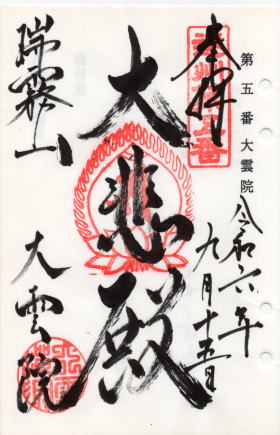 第五番大雲院
奉拝
令和六年
九月十五日
大悲殿
瑞霧山
大雲院